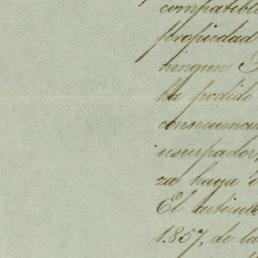 compatible
propiedad
ningun
ha podido
consecuencia
usurpador,
za haya
El articulo
1857, de la